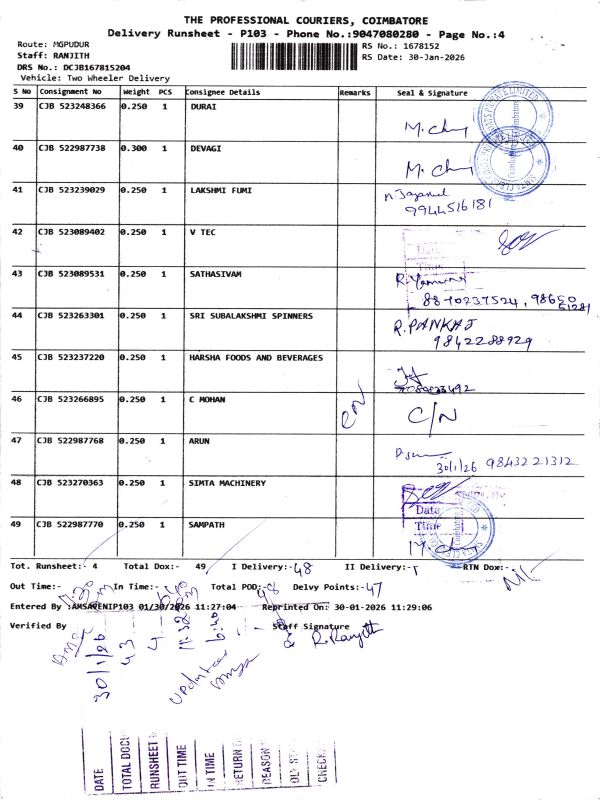 THE PROFESSIONAL COURIERS, COIMBATORE
Delivery Runsheet - P103 - Phone No.:9047080280 - Page No.:4
Route: MGPUDUR
Staff: RANJITH
DRS No.: DCJB167815204
Vehicle: Two Wheeler Delivery
RS No.: 1678152
RS Date: 30-Jan-2026
S No Consignment No Weight PCS Consignee Details Remarks Seal & Signature
39 CJB 523248366 0.250 1 DURAI M. Chy
40 CJB 522987738 0.300 1 DEVAGI M. Chy
41 CJB 523239029 0.250 1 LAKSHMI FUMI
9944516181
42 CJB 523089402 0.250 1 V TEC
Date
Time
43 CJB 523089531 0.250 1 SATHASIVAM
8870237524,
44 CJB 523263301 0.250 1 SRI SUBALAKSHMI SPINNERS R. PANKAJ
9842288929
45 CJB 523237220 0.250 1 HARSHA FOODS AND BEVERAGES
46 CJB 523266895 0.250 1 C MOHAN C/N
47 CJB 522987768 0.250 1 ARUN
30/1/26 9843221312
48 CJB 523270363 0.250 1 SIMTA MACHINERY
Date
Time
49 CJB 522987770 0.250 1 SAMPATH M. Chy
Tot. Runsheet:- 4 Total Dox:- 49, I Delivery:-48 II Delivery:- RTN Dox:- Nil
Out Time:- In Time:- Total POD:-48 Delvy Points:-47
Entered By :AMSAVENIP103 01/30/2026 11:27:04 Reprinted On: 30-01-2026 11:29:06
Verified By Staff Signature
R. Ranjith
DATE 30/1/26
TOTAL DOCU 43
RUNSHEET 4
OUT TIME
IN TIME
RETURN
REASON
DLY ST
CHECK